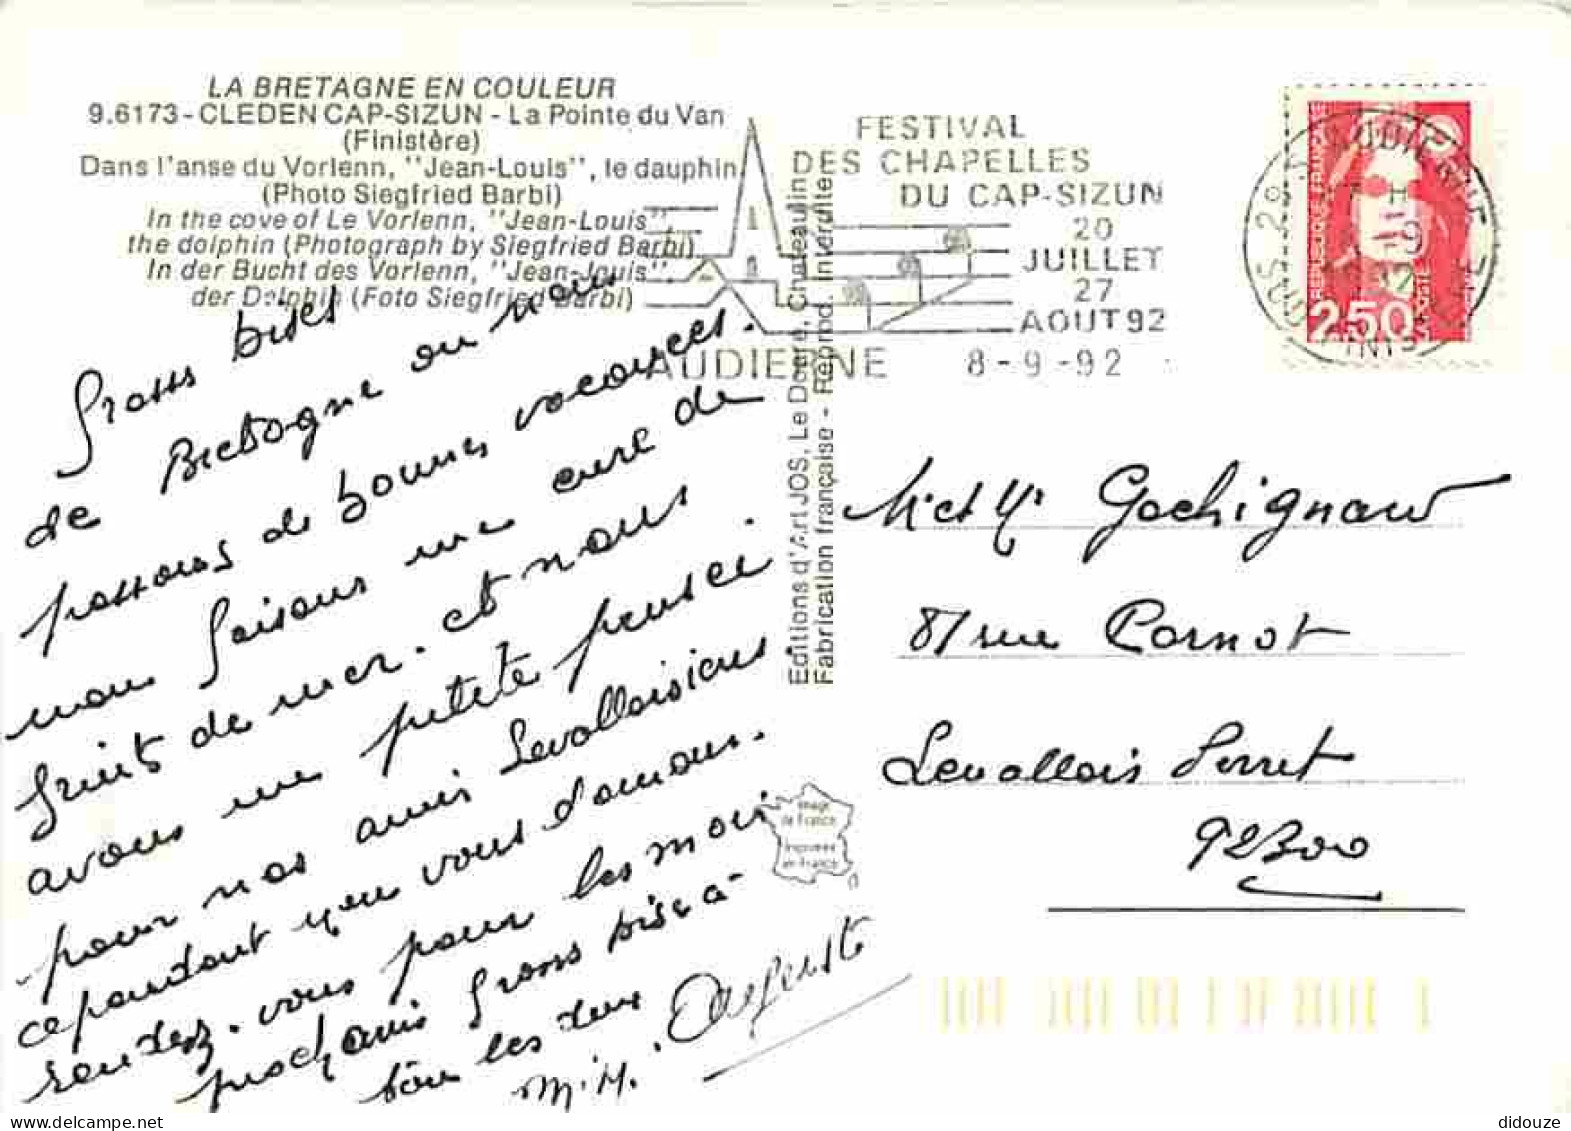 LA BRETAGNE EN COULEUR
9.6173 - CLEDEN CAP-SIZUN - La Pointe du Van
(Finistère)
Dans l'anse du Vorlenn, "Jean-Louis", le dauphin
(Photo Siegfried Barbi)
In the cove of Le Vorlenn, "Jean-Louis",
the dolphin (Photograph by Siegfried Barbi)
In der Bucht des Vorlenn, "Jean-Jouis",
der Dolphin (Foto Siegfried Barbi)
FESTIVAL
DES CHAPELLES
DU CAP-SIZUN
20
JUILLET
27
AOUT 92
AUDIERNE 8-9-92
REPUBLIQUE FRANÇAISE
2,50
Editions d'Art JOS, Le Doaré, Chateaulin
Fabrication française - Reprod. interdite
Grosses bises
de Bretagne ou nous
passons de bonnes vacances.
nous faisons une cure de
fruits de mer. et nous
avons une petite pensée
pour nos amis Levalloisiens.
cependant nous vous donnons
rendez-vous pour les mois
prochains Grosse bise à
tous les deux
M.H. Auguste
Mr et Me Gachignard
87 rue Carnot
Levallois Perret
92300
Image
de France
Imprimée
en France
didouze